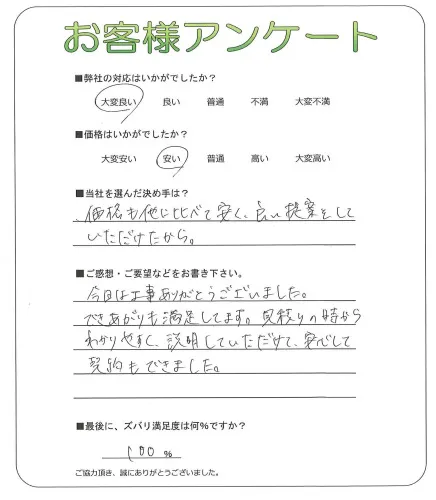 お客様アンケート
■弊社の対応はいかがでしたか?
大変良い 良い 普通 不満 大変不満
■価格はいかがでしたか?
大変安い 安い 普通 高い 大変高い
■当社を選んだ決め手は?
価格も他に比べて安く、良い提案をして
いただけたから。
■ご感想・ご要望などをお書き下さい。
今回は工事ありがとうございました。
できあがりも満足してます。見積りの時から
わかりやすく、説明していただけて、安心して
契約もできました。
■最後に、ズバリ満足度は何%ですか?
100 %
ご協力頂き、誠にありがとうございました。